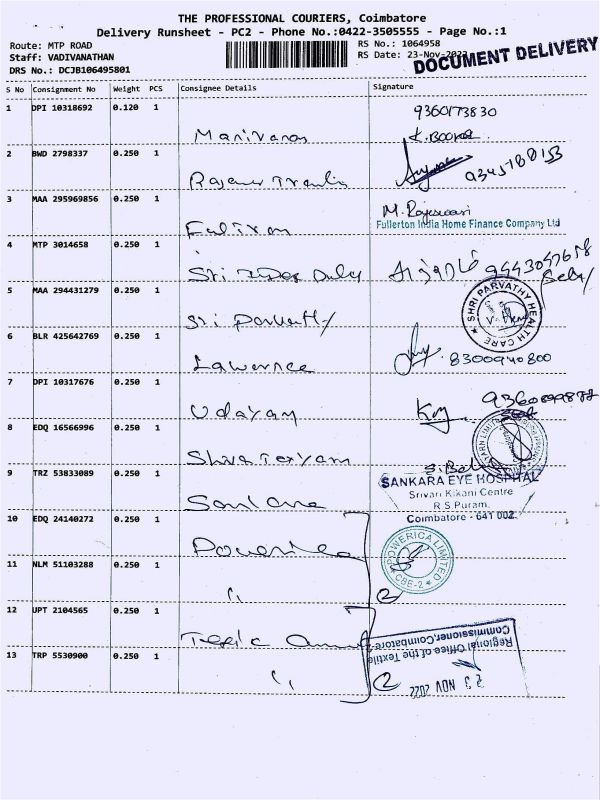 THE PROFESSIONAL COURIERS, Coimbatore
Delivery Runsheet - PC2 - Phone No.:0422-3505555 - Page No.:1
Route: MTP ROAD
RS No.: 1064958
Staff: VADIVANATHAN
RS Date: 23-Nov-2022
DOCUMENT DELIVERY
DRS No.: DCJB106495801
S No Consignment No Weight PCS Consignee Details Signature
1 DPI 10318692 0.120 1
9360173830
Manivanan
2 BWD 2798337 0.250 1
3 MAA 295969856 0.250 1
M. Rajeswari
Fullerton India Home Finance Company Ltd
4 MTP 3014658 0.250 1
Sri
5 MAA 294431279 0.250 1
SHRI PARVATHY HEALTH CARE
Sri Parvathy
6 BLR 425642769 0.250 1
8300940800
Lawrence
7 DPI 10317676 0.250 1
Udayam
8 EDQ 16566996 0.250 1
9 TRZ 53833089 0.250 1
SANKARA EYE HOSPITAL
Srivari Kikani Centre
R.S.Puram,
Coimbatore - 641 002.
10 EDQ 24140272 0.250 1
Powerica
POWERICA LIMITED
CBE-2
11 NLM 51103288 0.250 1
"
2
12 UPT 2104565 0.250 1
Regional Office of the Textile
Commissioner, Coimbatore-2
13 TRP 5530900 0.250 1
"
2
23 NOV 2022